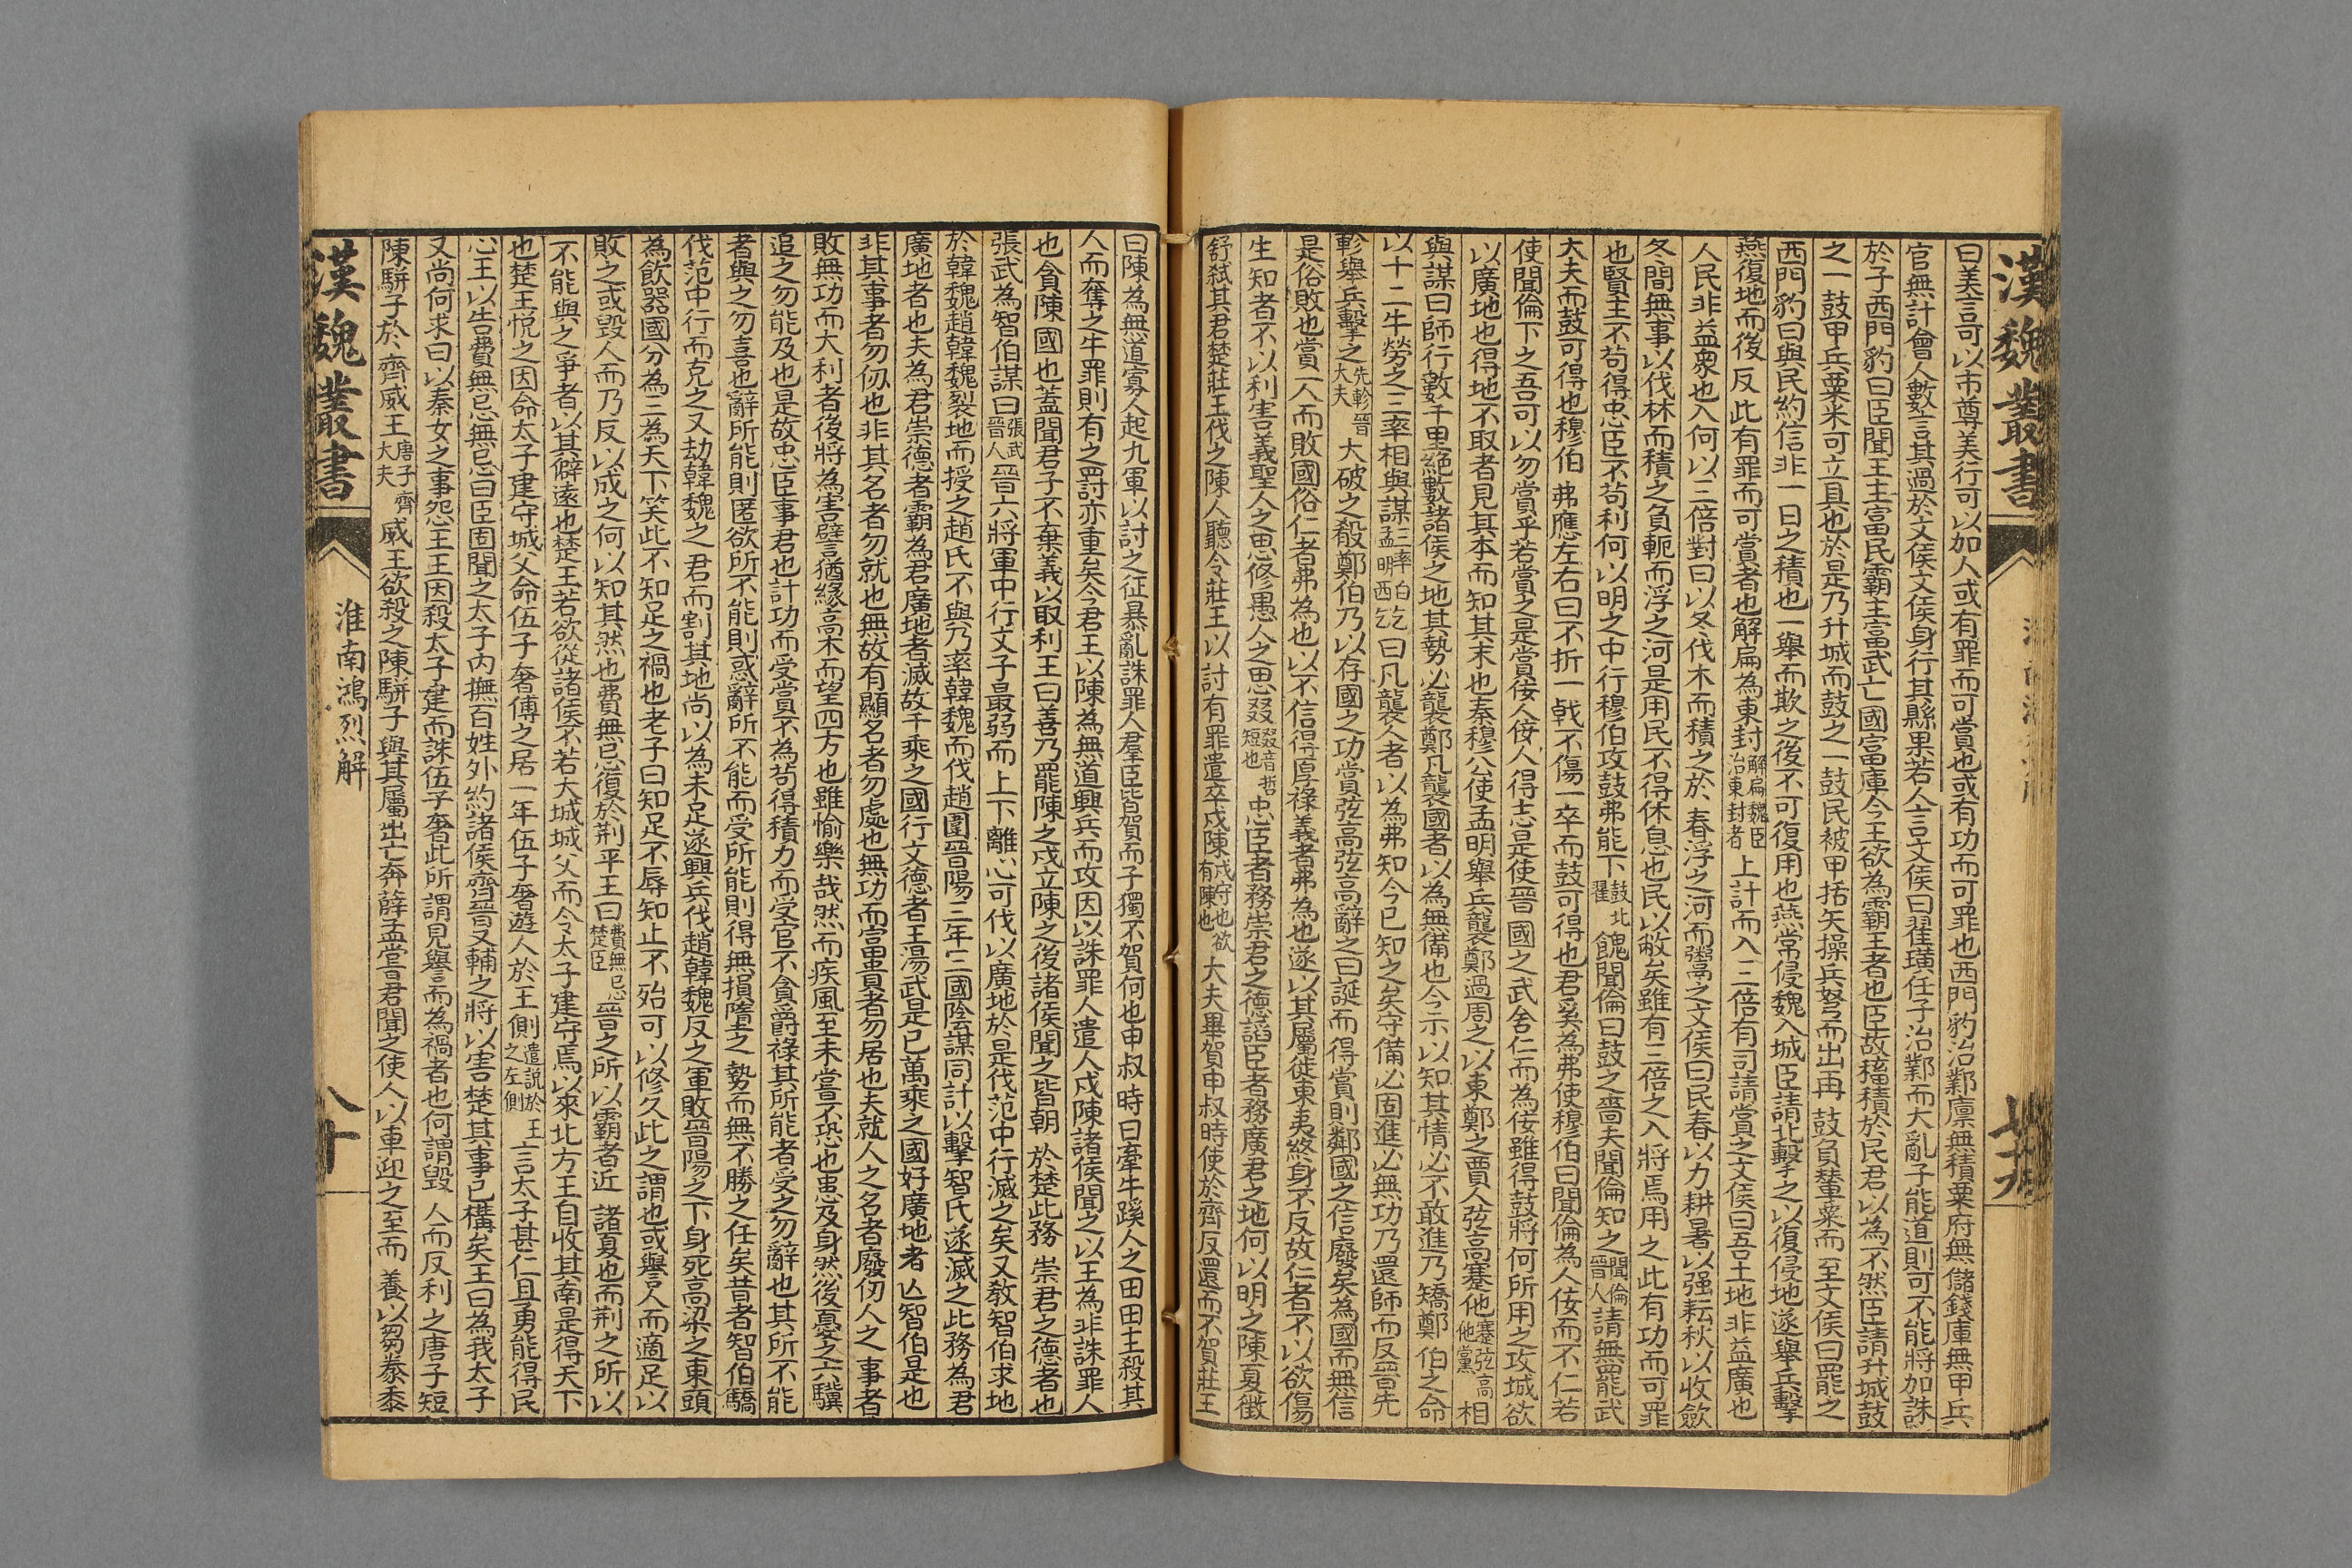 漢魏叢書
七十九
曰美言可以市尊美行可以加人或有罪而可賞也或有功而可罪也西門豹治鄴廩無積粟府無儲錢庫無甲兵
官無計會人數言其過於文侯文侯身行其縣果若人言文侯曰翟璜任子治鄴而大亂子能道則可不能將加誅
於子西門豹曰臣聞王主富民霸主富武亡國富庫今王欲為霸王者也臣故稸積於民君以為不然臣請升城鼓
之一鼓甲兵粟米可立具也於是乃升城而鼓之一鼓民被甲括矢操兵弩而出再鼓負輦粟而至文侯曰罷之
西門豹曰與民約信非一日之積也一舉而欺之後不可復用也燕常侵魏入城臣請北擊之以復侵地遂舉兵擊
燕復地而後反此有罪而可賞者也解扁為東封解扁魏臣治東封者上計而入三倍有司請賞之文侯曰吾土地非益廣也
人民非益衆也入何以三倍對曰以冬伐木而積之於春浮之河而鬻之文侯曰民春以力耕暑以强耘秋以收歛
冬間無事以伐林而積之負軛而浮之河是用民不得休息也民以敝矣雖有三倍之入將焉用之此有功而可罪
也賢主不苟得忠臣不苟利何以明之中行穆伯攻鼓弗能下鼓北翟餽聞倫曰鼓之嗇夫聞倫知之聞倫晉人請無罷武
大夫而鼓可得也穆伯弗應左右曰不折一戟不傷一卒而鼓可得也君奚為弗使穆伯曰聞倫為人佞而不仁若
使聞倫下之吾可以勿賞乎若賞之是賞佞人佞人得志是使晉國之武舍仁而為佞雖得鼓將何所用之攻城欲
以廣地也得地不取者見其本而知其末也秦穆公使孟明舉兵襲鄭過周之以東鄭之賈人弦高蹇他蹇弦高他黨相
與謀曰師行數千里絕數諸侯之地其勢必襲鄭凡襲國者以為無備也今示以知其情必不敢進乃矯鄭伯之命
以十二牛勞之三率相與謀三率白孟明西乞曰凡襲人者以為弗知今已知之矣守備必固進必無功乃還師而反晉先
軫舉兵擊之先軫晉大夫大破之殽鄭伯乃以存國之功賞弦高弦高辭之曰誕而得賞則鄭國之信廢矣為國而無信
是俗敗也賞一人而敗國俗仁者弗為也以不信得厚祿義者弗為也遂以其屬徙東夷終身不反故仁者不以欲傷
生知者不以利害義聖人之思修愚人之思叕叕音哲短也忠臣者務崇君之德謟臣者務廣君之地何以明之陳夏徵
舒弒其君楚莊王伐之陳人聽令莊王以討有罪遣卒戍陳戍守也欲有陳也大夫畢賀申叔時使於齊反還而不賀莊王
曰陳為無道寡人起九軍以討之征暴亂誅罪人羣臣皆賀而子獨不賀何也申叔時曰牽牛蹊人之田田主殺其
人而奪之牛罪則有之罰亦重矣今君王以陳為無道興兵而攻因以誅罪人遣人戍陳諸侯聞之以王為非誅罪人
也貪陳國也蓋聞君子不棄義以取利王曰善乃罷陳之戍立陳之後諸侯聞之皆朝於楚此務崇君之德者也
張武為智伯謀曰張武晉人晉六將軍中行文子最弱而上下離心可伐以廣地於是伐范中行滅之矣又敎智伯求地
於韓魏趙韓魏裂地而授之趙氏不與乃率韓魏而伐趙圍晉陽三年三國陰謀同計以擊智氏遂滅之此務為君
廣地者也夫為君崇德者霸為君廣地者滅故千乘之國行文德者王湯武是已萬乘之國好廣地者亾智伯是也
非其事者勿仞也非其名者勿就也無故有顯名者勿處也無功而富貴者勿居也夫就人之名者廢仞人之事者
敗無功而大利者後將為害譬猶緣高木而望四方也雖愉樂哉然而疾風至未嘗不恐也患及身然後憂之六驥
追之勿能及也是故忠臣事君也計功而受賞不為苟得積力而受官不貪爵祿其所能者受之勿辭也其所不能
者與之勿喜也辭所能則匿欲所不能則惑辭所不能而受所能則得無損墮之勢而無不勝之任矣昔者智伯驕
伐范中行而克之又劫韓魏之君而割其地尚以為未足遂興兵伐趙韓魏反之軍敗晉陽之下身死高梁之東頭
為飲器國分為三為天下笑此不知足之禍也老子曰知足不辱知止不殆可以修久此之謂也或譽人而適足以
敗之或毀人而乃反以成之何以知其然也費無忌復於荆平王曰費無忌楚臣晉之所以霸者近諸夏也而荆之所以
不能與之爭者以其僻遠也楚王若欲從諸侯不若大城城父而令太子建守焉以來北方王自收其南是得天下
也楚王悅之因命太子建守城父命伍子奢傅之居一年伍子奢遊人於王側遣說於王之左側言太子甚仁且勇能得民
心王以告費無忌無忌曰臣固聞之太子内撫百姓外約諸侯齊晉又輔之將以害楚其事已構矣王曰為我太子
又尚何求曰以秦女之事怨王王因殺太子建而誅伍子奢此所謂見譽而為禍者也何謂毀人而反利之唐子短
陳駢子於齊威王唐子齊大夫威王欲殺之陳駢子與其屬出亡奔薛孟嘗君聞之使人以車迎之至而養以芻豢黍
漢魏叢書
淮南鴻烈解
八十